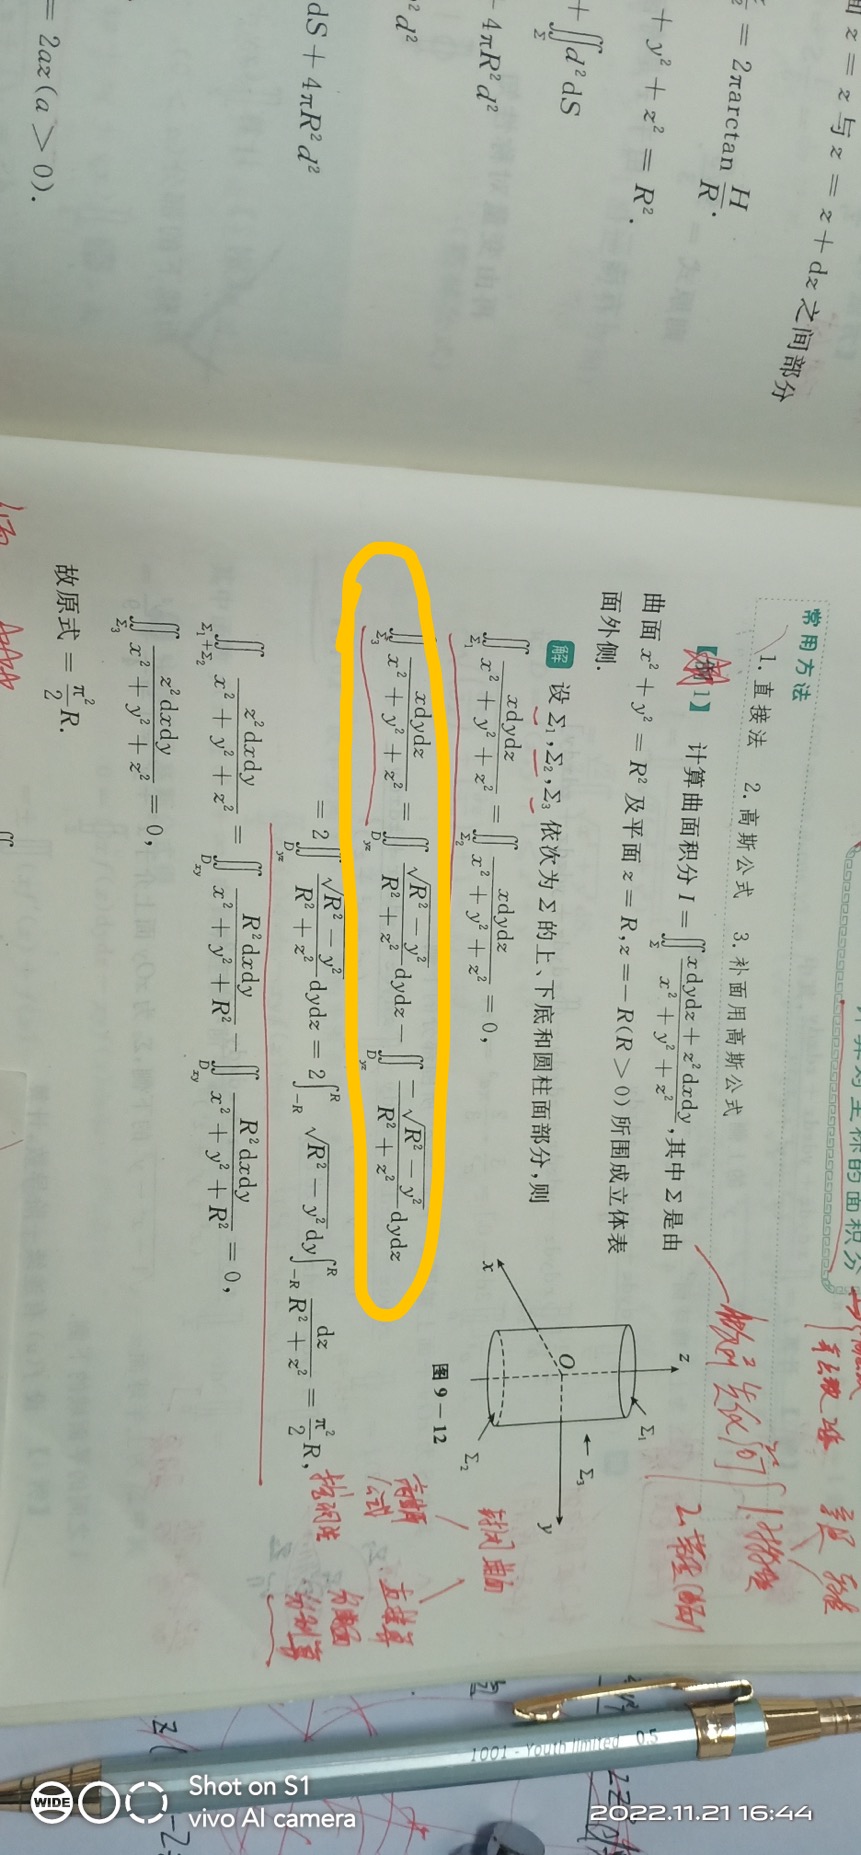 面 z = z 与 z = z + dz 之间部分
= 2πarctan H/R.
+ y² + z² = R².
+ ∬_Σ d² dS
4πR²d²
dS + 4πR²d²
= 2az(a > 0).
计算对坐标的面积分
常用方法
1. 直接法 2. 高斯公式 3. 补面用高斯公式
【例1】 计算曲面积分 I = ∬_Σ (xdydz + z²dxdy)/(x² + y² + z²), 其中 Σ 是由
曲面 x² + y² = R² 及平面 z = R, z = −R(R > 0) 所围成立体表
面外侧.
解 设 Σ₁, Σ₂, Σ₃ 依次为 Σ 的上、下底和圆柱面部分, 则
∬_Σ₁ xdydz/(x² + y² + z²) = ∬_Σ₂ xdydz/(x² + y² + z²) = 0,
∬_Σ₃ xdydz/(x² + y² + z²) = ∬_Dyz √(R² − y²)/(R² + z²) dydz − ∬_Dyz −√(R² − y²)/(R² + z²) dydz
= 2∬_Dyz √(R² − y²)/(R² + z²) dydz = 2∫_{−R}^{R} √(R² − y²) dy ∫_{−R}^{R} dz/(R² + z²) = π²/2 R,
∬_Σ₁+Σ₂ z²dxdy/(x² + y² + z²) = ∬_Dxy R²dxdy/(x² + y² + R²) − ∬_Dxy R²dxdy/(x² + y² + R²) = 0,
∬_Σ₃ z²dxdy/(x² + y² + z²) = 0,
故原式 = π²/2 R.
z
Σ₁
O
Σ₃
y
x
Σ₂
图 9−12
封闭曲面
高斯公式
直接算
挖洞法
分割算
1001 - Youth limited 0.5
WIDE
Shot on S1
vivo AI camera
2022.11.21 16:44